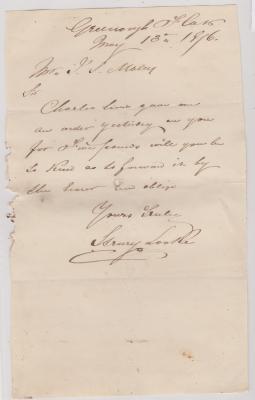 Greenough
May 13th 1876.
Mr. J. S.
Sir
Charles gave me
an order yesterday on you
for pounds will you be
so kind as to forward it by
the bearer and oblige
Yours truly
Henry Locke